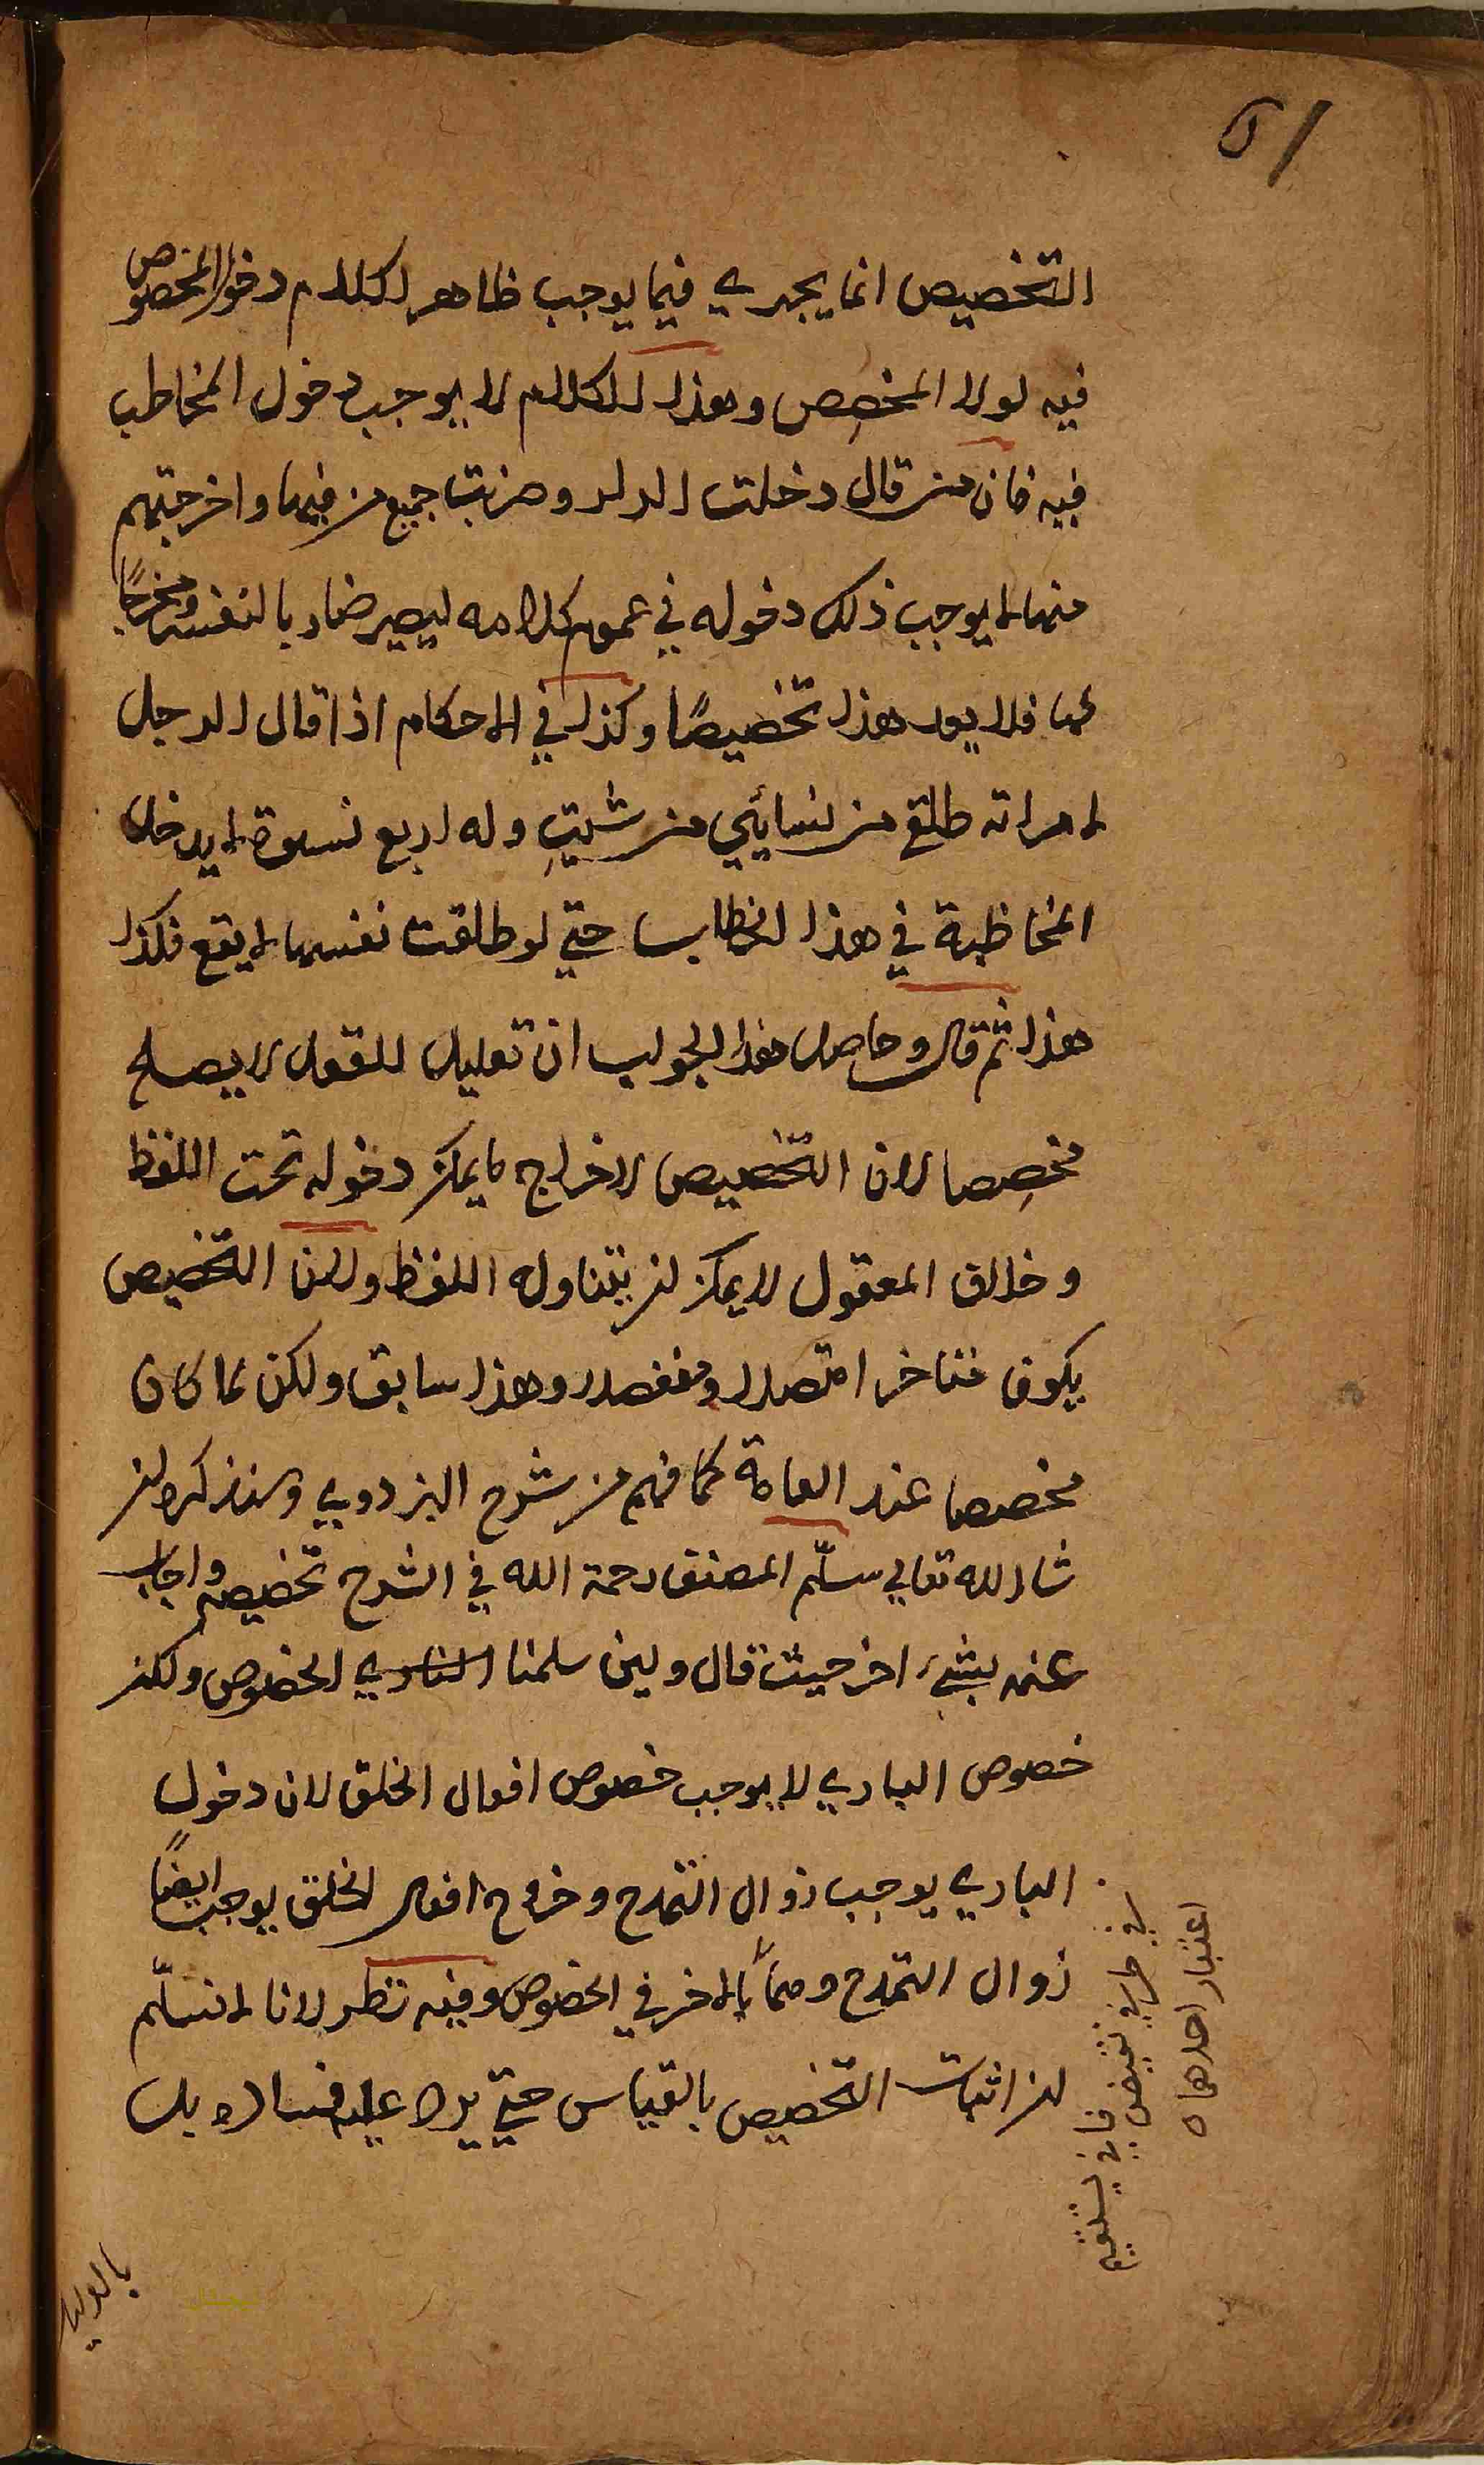 ٥١
التخصيص انما يجري فيما يوجب ظاهر الكلام دخول المخصوص
فيه لولا المخصِص وهذا الكلام لا يوجب دخول المخاطب
فيه فان من قال دخلت الدار وضربت جميع من فيها واخرجتهم
منها لا يوجب ذلك دخوله في عموم كلامه ليصير ضاربا لنفسه ومخرجًا
لها فلا يعد هذا تخصيصًا وكذا في الاحكام اذا قال الرجل
لامراته طلقي من نسايئي من شيتِ وله اربع نسوة لا يدخل
المخاطبة في هذا الخطاب حتي لو طلقت نفسها لا يقع فكذا
هذا ثم قال وحاصل هذا الجواب ان تعليل العقول لا يصلح
مخصِصا لان التخصيص لاخراج ما يمكن دخوله تحت اللفظ
وخلاف المعقول لا يمكن ان يتناوله اللفظ ولان التخصيص
يكون متاخرا متصلا ومنفصلا وهذا سابق ولكن لما كان
مخصصا عند العامة كما فهم من شرح البزدوي وسنذكره ان
شا الله تعالي سلّم المصنف رحمة الله في الشرح تخصيصه واجاب
عنه بشيء اخر حيث قال ولين سلمنا الخصوص ولكن
خصوص الباري لا يوجب خصوص افعال الخلق لان دخول
الباري يوجب زوال التمدح وخروج افعال الخلق يوجب ايضًا
زوال التمدح ومتى بالاخر في الخصوص وفيه نظر لانا لا نسلّم
ان اثبات التخصيص بالقياس حتي يرد عليه فساده بل
في طرفي نقيض فاني يستقيم
اعتبار احدهما ه